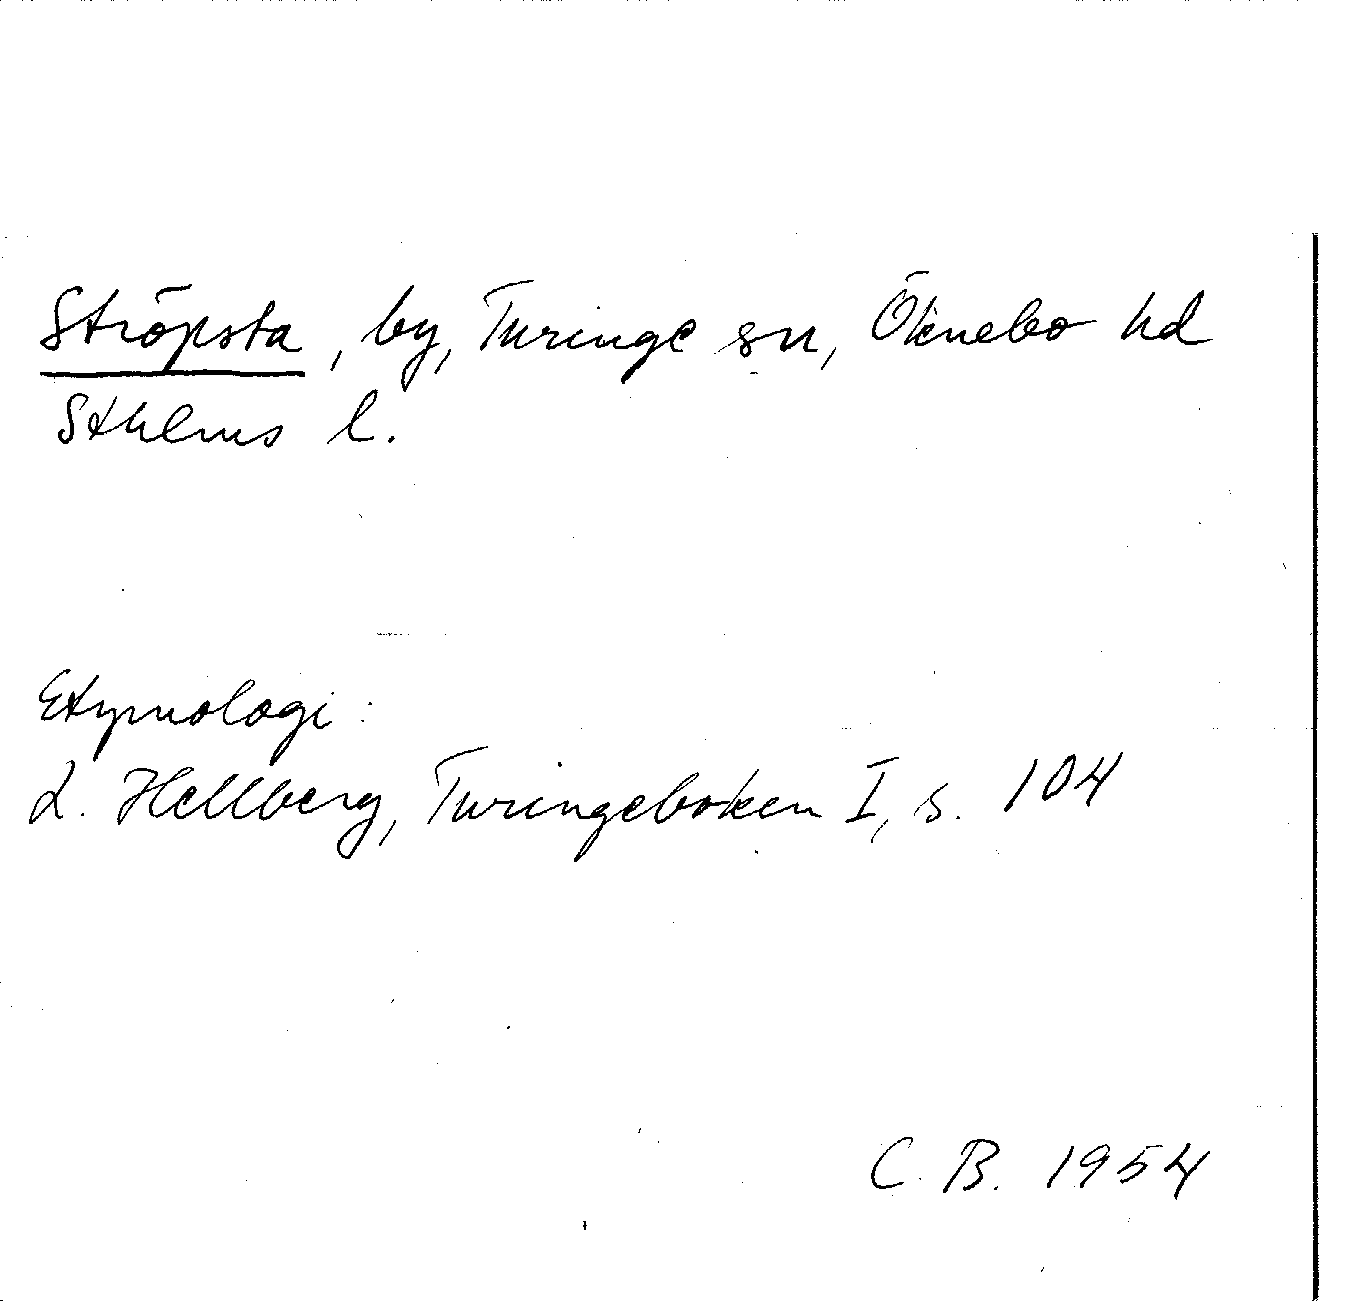 Ströpsta, by, Turinge sn, Öknebo hd
Sthlms l.
Etymologi:
L. Hellberg, Turingeboken I, s. 104
C. B. 1954